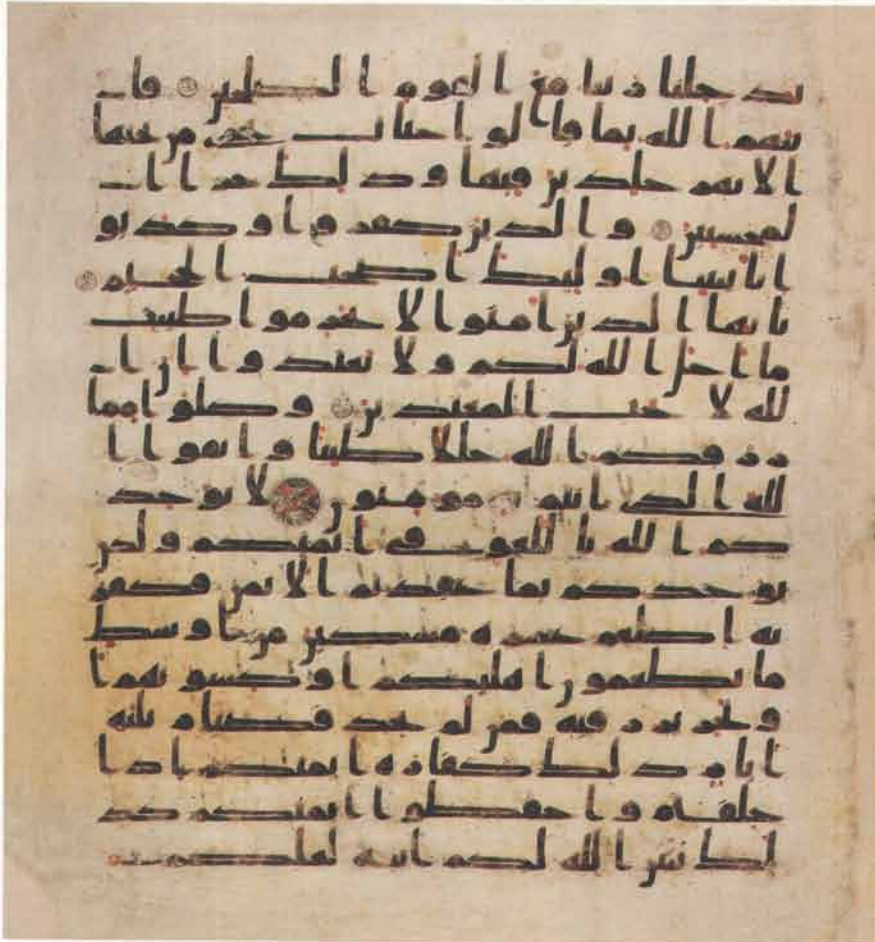 يدخلنا ربنا مع القوم الصلحين فا
ثبهم الله بما قالوا جنات تجري من تحتها
الانهر خلدين فيها وذلك جزا ا
لمحسنين والذين كفروا وكذبو
ا بايتنا اوليك اصحب الجحيم
يايها الذين امنوا لا تحرموا طيبت
ما احل الله لكم ولا تعتدوا ان ا
لله لا يحب المعتدين وكلوا مما
رزقكم الله حللا طيبا واتقوا ا
لله الذي انتم به مومنون لا يوخذ
كم الله باللغو في ايمنكم ولكن
يوخذكم بما عقدتم الايمن فكفر
ته اطعم عشرة مسكين من اوسط
ما تطعمون اهليكم او كسوتهم ا
و تحرير رقبة فمن لم يجد فصيام ثلثة
ايام ذلك كفارة ايمنكم اذا
حلفتم واحفظوا ايمنكم كذ
لك يبين الله لكم ايته لعلكم تـ